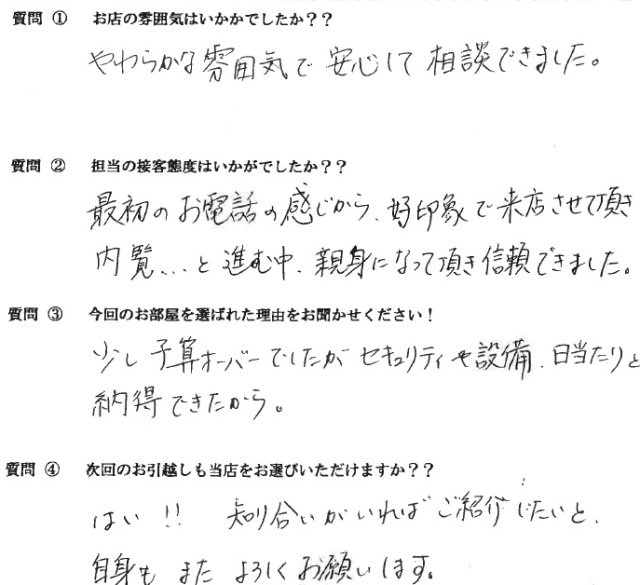 質問 ① お店の雰囲気はいかかでしたか？？
やわらかな雰囲気で 安心して 相談できました。
質問 ② 担当の接客態度はいかがでしたか？？
最初のお電話の感じから、好印象で来店させて頂き
内覧...と進む中、親身になって頂き信頼できました。
質問 ③ 今回のお部屋を選ばれた理由をお聞かせください！
少し予算オーバーでしたが セキュリティや設備、日当たりと
納得できたから。
質問 ④ 次回のお引越しも当店をお選びいただけますか？？
はい !! 知り合いがいれば ご紹介したいと、
自身も また よろしくお願いします。